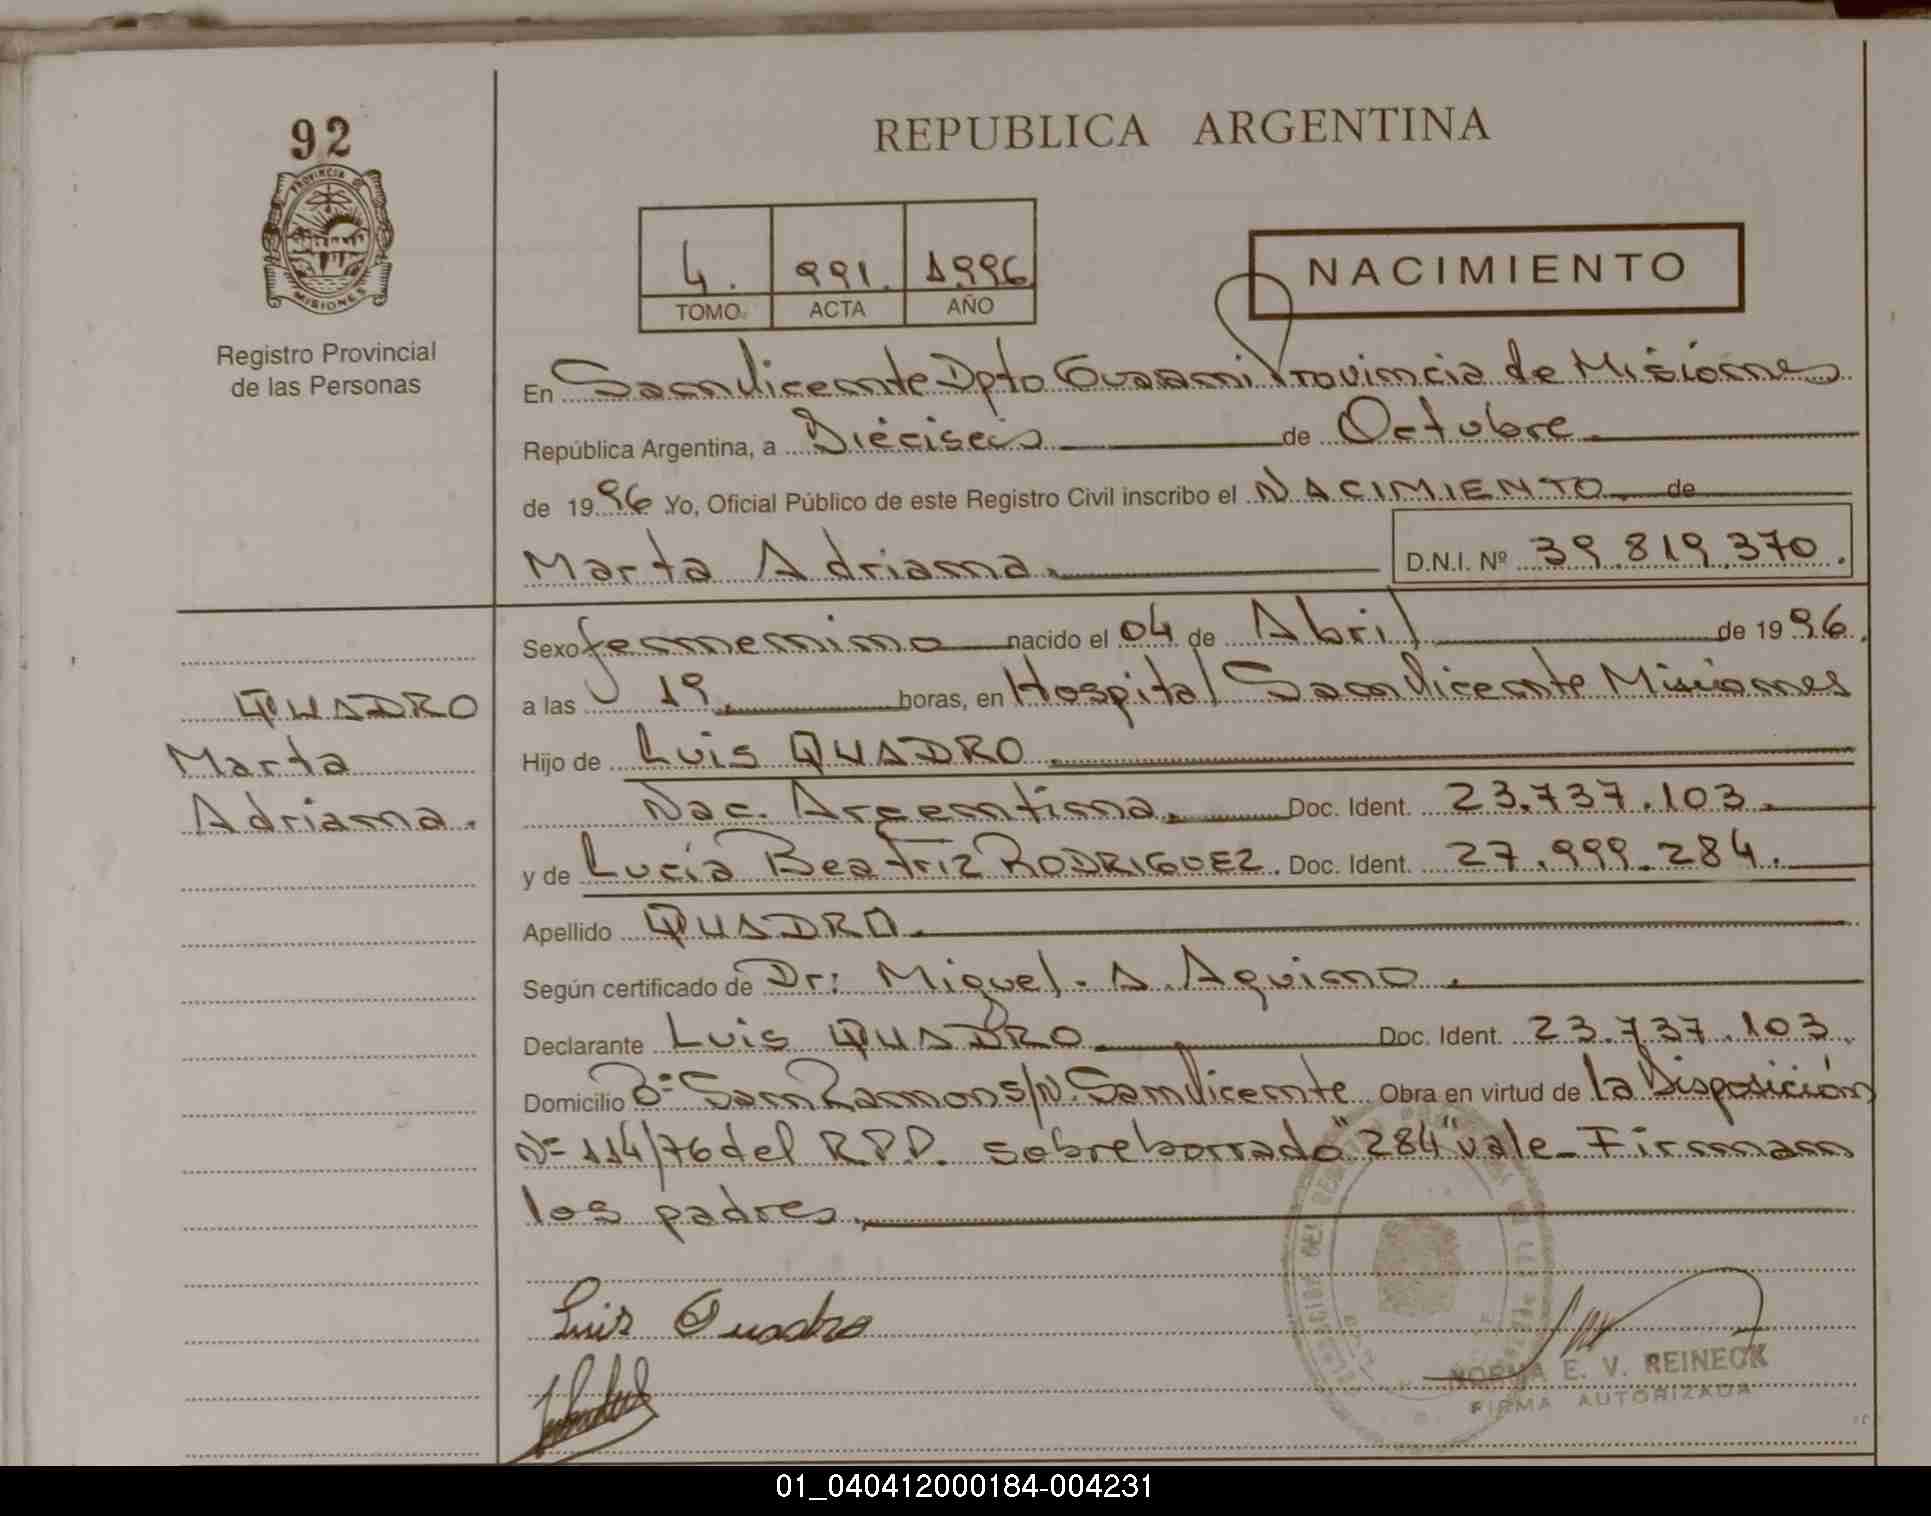 92
PROVINCIA DE
MISIONES
Registro Provincial
de las Personas
REPUBLICA ARGENTINA
4. 991. 1996
TOMO ACTA AÑO
NACIMIENTO
En San Vicente Dpto Guarani Provincia de Misiones
República Argentina, a Dieciseis de Octubre
de 1996 Yo, Oficial Público de este Registro Civil inscribo el NACIMIENTO de
Marta Adriana. D.N.I. Nº 39.819.370.
Sexo femenino nacido el 04 de Abril de 1996.
a las 19. horas, en Hospital San Vicente Misiones
Hijo de Luis QUADRO.
Nac. Argentina. Doc. Ident. 23.737.103.
y de Lucía Beatriz RODRIGUEZ. Doc. Ident. 27.999.284.
Apellido QUADRO.
Según certificado de Dr: Miguel. A. Aquino.
Declarante Luis QUADRO. Doc. Ident. 23.737.103.
Domicilio Bº San Ramon s/N. San Vicente Obra en virtud de la Disposición
Nº 114/76 del R.P.P. sobreborrado "284" vale_ Firman
los padres.
QUADRO
Marta
Adriana.
Luis Quadro
NORMA E. V. REINECK
FIRMA AUTORIZADA
01_040412000184-004231